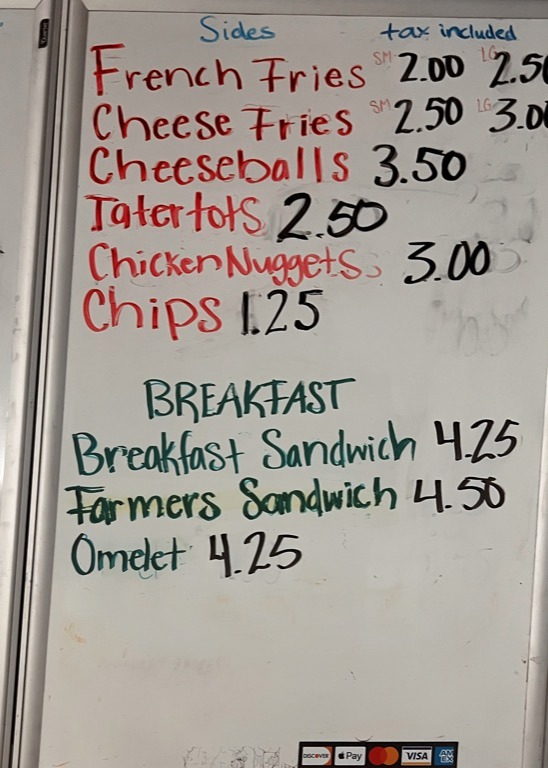 Sides tax included
French Fries SM 2.00 LG 2.50
Cheese Fries SM 2.50 LG 3.00
Cheeseballs 3.50
Tatertots 2.50
Chicken Nuggets 3.00
Chips 1.25
BREAKFAST
Breakfast Sandwich 4.25
Farmers Sandwich 4.50
Omelet 4.25
DISCOVER Pay VISA AM EX